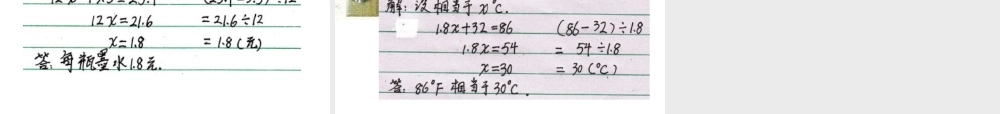 12x=21.6 =21.6÷12
x=1.8 =1.8(元)
答:每瓶墨水1.8元.
解:设相当于x°C.
1.8x+32=86 (86-32)÷1.8
1.8x=54 = 54÷1.8
x=30 =30(°C)
答:86°F相当于30°C.